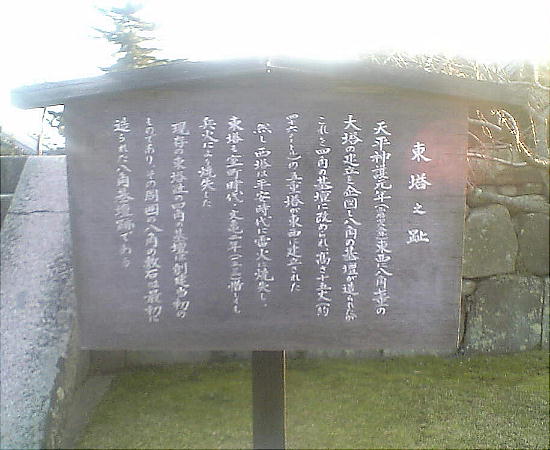 東塔之趾
天平神護元年(　)東西に八角七重の
大塔の建立を企図し八角の基壇が造られたが
これを四角の基壇に改められ、高さ十五丈(約
四六メートル)の五重塔が東西に建立された
然し西塔は平安時代に雷火に焼失し
東塔も室町時代文亀二年(一五〇二)惜しくも
兵火により焼失した
現存の東塔址の四角の基壇は創建当初の
ものであり、その周囲の八角の敷石は最初に
造られた八角基壇跡である